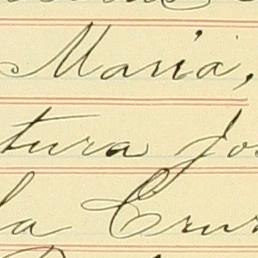 Maria,
tura Jo
la Cruz